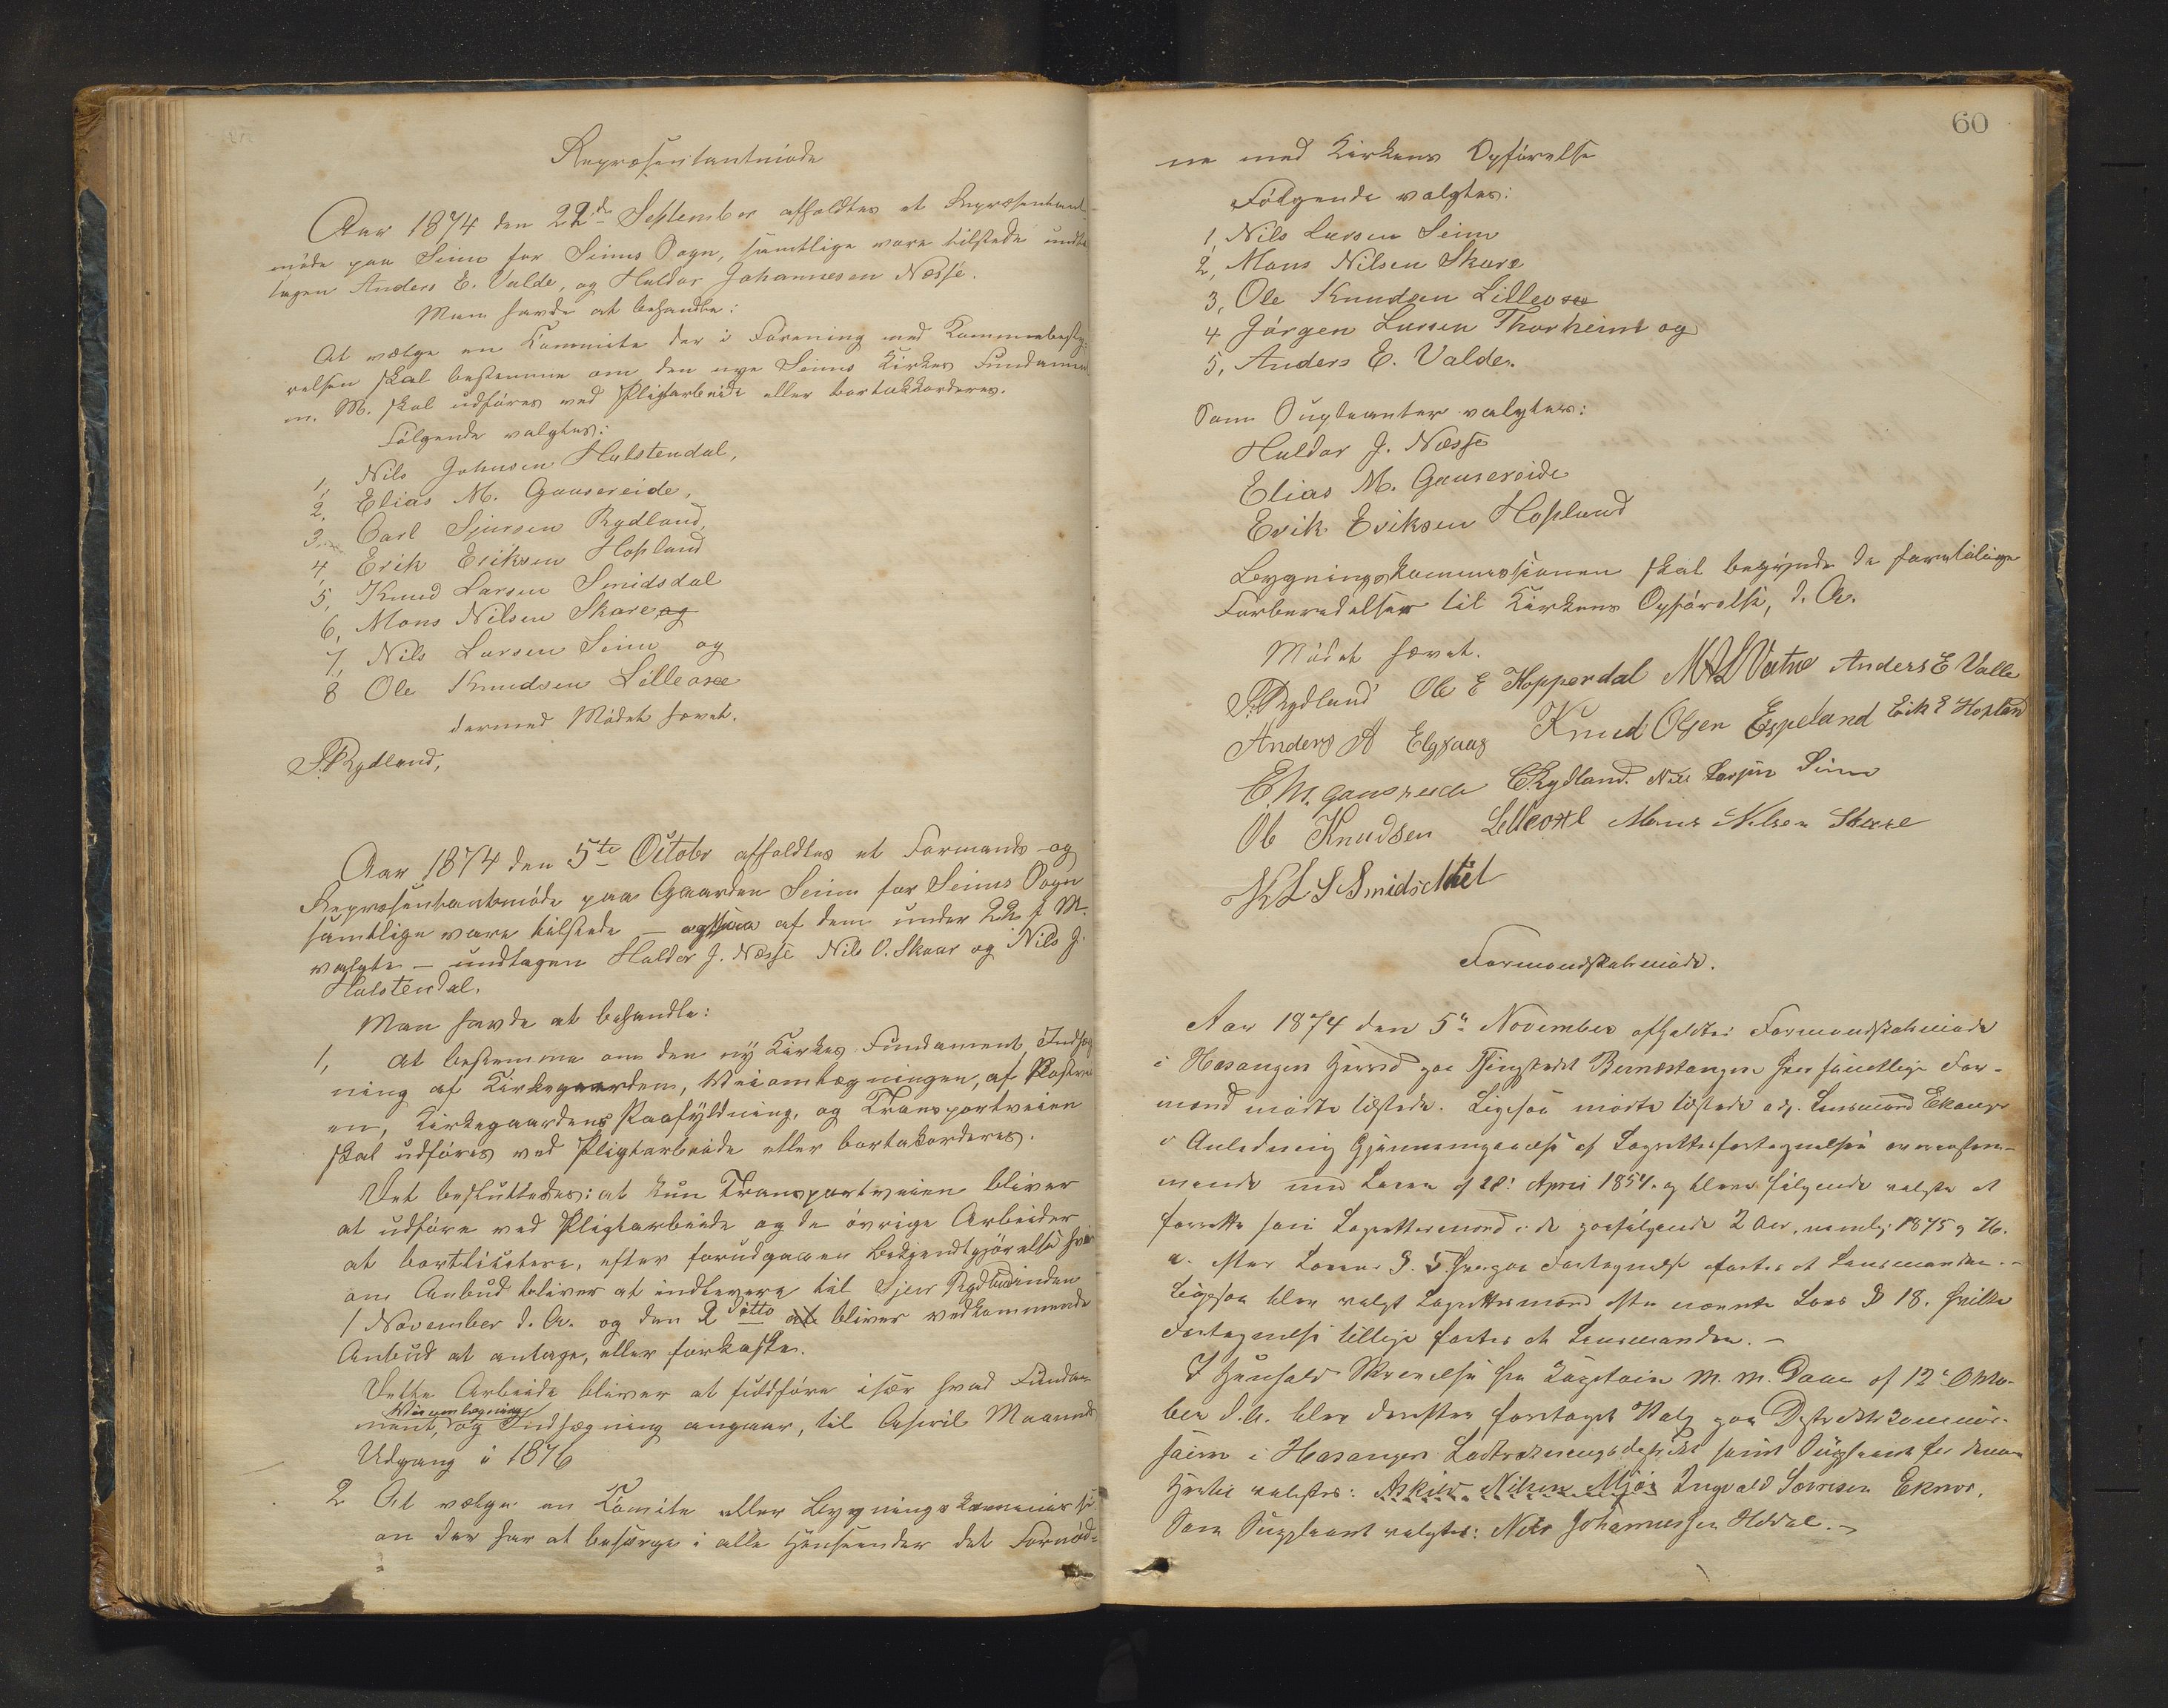 Repræsentantmøde
Aar 1874 den 22de September afholdtes et Repræsentant-
møde paa Seim for Seims Sogn, samtlige vare tilstede undta
tagen Anders E. Valde, og Haldor Johannesen Næsse.
Man havde at behandle:
At vælge en Committe der i Forening med Kommunebesty-
relsen skal bestemme om den nye Seims Kirkes Fundament
m. M. skal udføres ved Pligtarbeide eller bortakkorderes.
Følgende valgtes:
1, Nils Johnsen Halstendal,
2, Elias M. Gausereide,
3, Carl Sjursen Rydland,
4 Erik Eriksen Hopland
5, Knud Larsen Smidsdal
6, Mons Nilsen Skare og
7, Nils Larsen Seim og
8 Ole Knudsen Lilleoxe
dermed Mødet hævet.
S. Rydland,
Aar 1874 den 5te October afholdtes et Formands- og
Repræsentantmøde paa Gaarden Seim for Seims Sogn
samtlige vare tilstede – ogsaa af dem under 22 f. M.
valgte – undtagen Haldor J. Næsse Nils O. Skaar og Nils J.
Halstendal.
Man havde at behandle:
1, at bestemme om den ny Kirkes Fundament, Indhæg
ning af Kirkegaarden, Veiomlægningen, af
en, Kirkegaardens Paafyldning, og Transportveien
skal udføres ved Pligtarbeide eller bortakorderes.
Det besluttedes: at kun Transportveien bliver
at udføre ved Pligtarbeide og de øvrige Arbeider
at bortlicitere, efter forudgaaen Bekjendtgjørelse hvor
om Anbud bliver at indlevere til Sjur Rydland inden
1 November d. A. og den 2 ditto at bliver vedkommende
Anbud at antage, eller forkaste.
Dette Arbeide bliver at fuldføre især hvad Funda-
Veiomlægning
ment, og Indhægning angaar, til April Maaneds
Udgang i 1876
2 At vælge en Comite eller Bygningskommissi
on der har at besørge i alle Henseender det Fornød-
60
ne med Kirkens Opførelse
Følgende valgtes:
1, Nils Larsen Seim
2, Mons Nilsen Skare
3, Ole Knudsen Lilleoxe
4 Jørgen Larsen Thorheim og
5, Anders E. Valde.
Som Supleanter valgtes:
Haldor J. Næsse
Elias M. Gausereide
Erik Eriksen Hopland
Bygningskommissionen skal begynde de foreløbige
Forberedelser til Kirkens Opførelse, d. A.
Mødet hævet.
S. Rydland Ole E Hopperdal Anders E Valle
Anders A Knud Olsen Espeland Erik E Hopland
E. M. Gausereide C Rydland. Nils Larsen Seim
Ole Knudsen Lilleoxe Mons Nilsen Skare
K L Smidsdal
Formandskabsmøde.
Aar 1874 den 5te November afholdtes Formandskabsmøde
i Hosanger Herred paa Thingstedet Bernestangen hvor samtlige For-
mænd mødte tilstede. Ligesaa mødte tilstede Lensmand Ekanger
i Anledning Gjennemgaaelse af Lagrettesfortegnelsen overensstem-
mende med Loven af 28 April 1854. og bleve følgende valgte at
forrette som Lagrettesmænd i de paafølgende 2 Aar, nemlig 1875 og 76.
a. efter Lovens § 5 hvorpaa Fortegnelse afgaves at Lensmanden.–
Ligesaa blev valgt Lagrettesmænd efter nævnte Lovs § 18. hvilke
Fortegnelse tillige førtes at Lensmanden.–
I Henhold Skrivelse fra Kaptein M. M. Daae af 12te Okto-
ber d. A. blev derefter foretaget Valg paa
i Hosanger samt Suppleant for denne
Hertil valgtes: Askild Nilsen Mjøs Ingvald Eknes.
Som Suppleant valgtes: Nils Johannessen Heldal.–